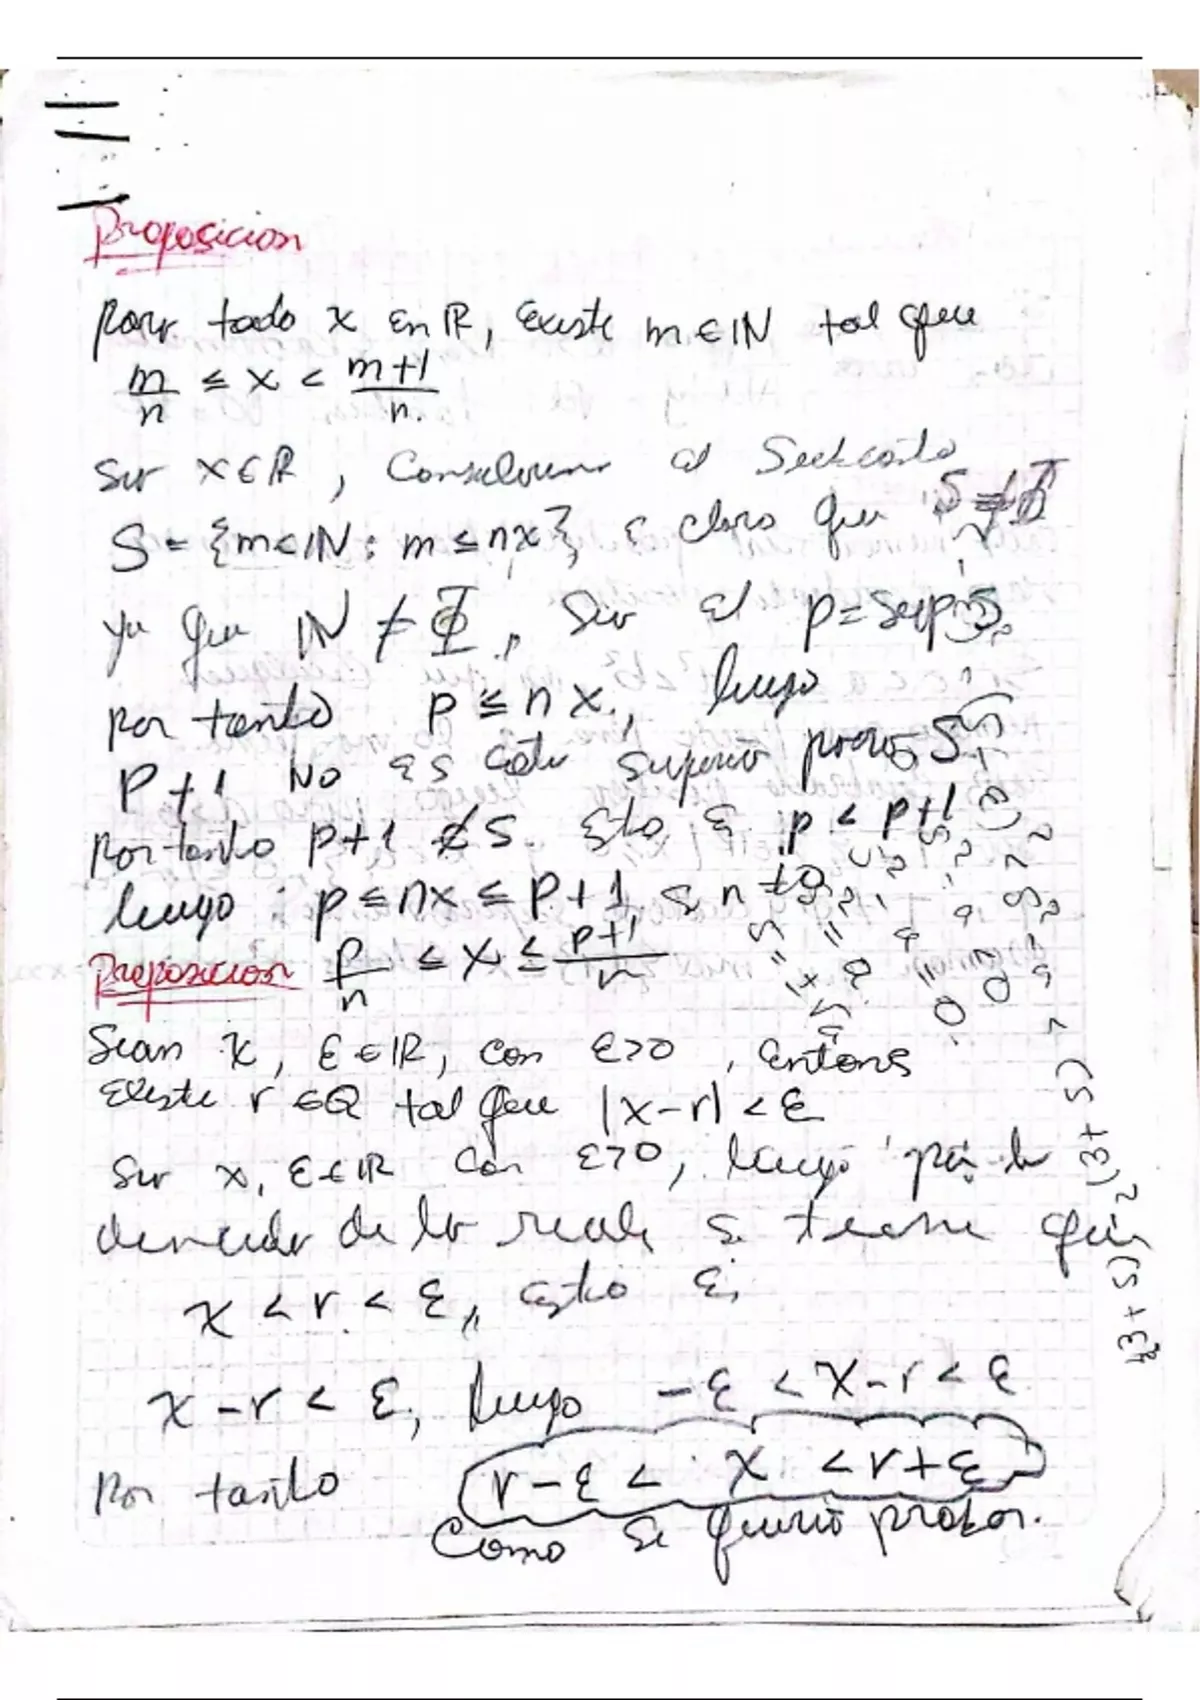 Proposicion
para todo x en ℝ, Existe m ∈ ℕ tal que
m/n ≤ x < m+1/n.
Sea x ∈ ℝ, Consideremos el
S = {m ∈ ℕ : m ≤ nx}, es claro que S ≠ Φ
ya que ℕ ≠ Φ, Sea El p = sup S
por tanto p ≤ nx., luego
p+1 No es cota superior para S
Por tanto p+1 ∉ S. Esto Es p < p+1
luego : p ≤ nx ≤ p+1, si n ≠ 0
Proposicion p/n ≤ x ≤ p+1/n
Sean x, ε ∈ ℝ, con ε>0, entons
Existe r ∈ ℚ tal que |x-r| < ε
Sea x, ε ∈ ℝ con ε>0, luego por la
de lo reale se tiene que
x < r < ε, esto es
x - r < ε, luego -ε < x-r < ε
Por tanto r-ε < x < r+ε
Como se queria probar.